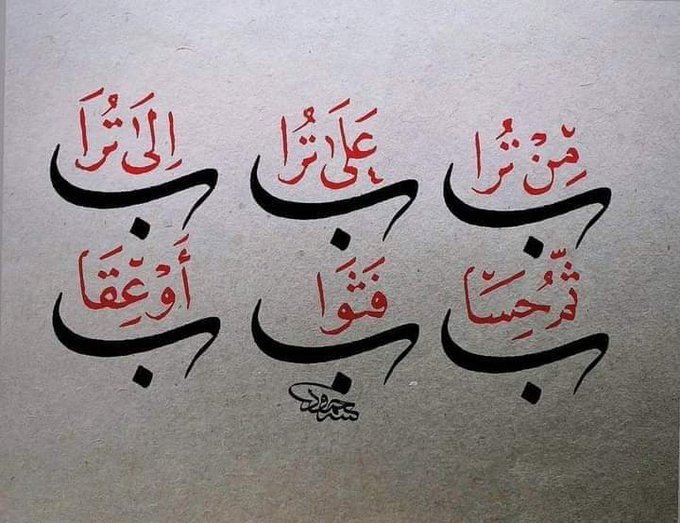 مِنْ تُرَاب عَلَىٰ تُرَاب اِلَىٰ تُرَاب
ثُمَّ حِسَاب فَثَوَاب أَوْ عِقَاب